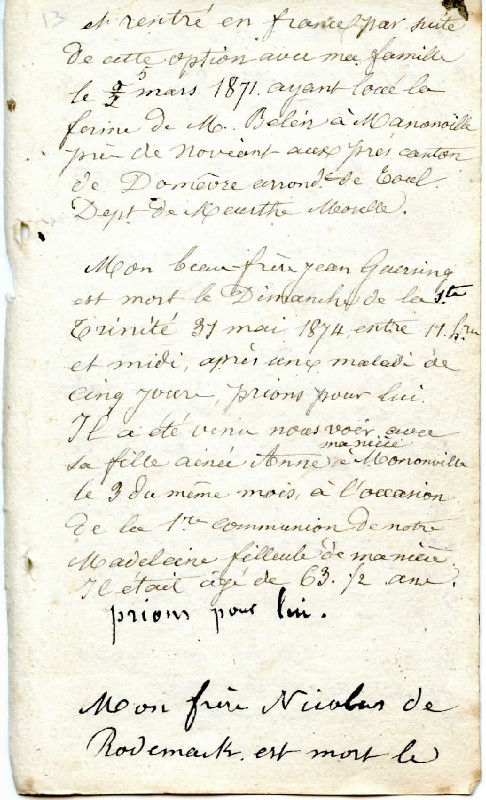 13
et rentré en france par suite
de cette option avec ma famille
le 5 mars 1871. ayant loué la
ferme de M. Belén à Manonville
près de Noviant aux pres canton
de Domèvre arrond.t de Toul.
Dept. de Meurthe Moselle.
Mon beau-frère jean Guersing
est mort le Dimanche de la Ste
Trinité 31 mai 1874, entre 11. hres
et midi, après une maladi de
cinq jours, prions pour lui.
Il a été venu nous voir avec
sa fille ainée Anne ma nièce à Mononville
le 3 du même mois, à l'occasion
de la 1re communion de notre
Madeleine filleule de ma nièce
Il était âgé de 63. 1/2 ans.
prions pour lui.
Mon frère Nicolas de
Rodemack. est mort le